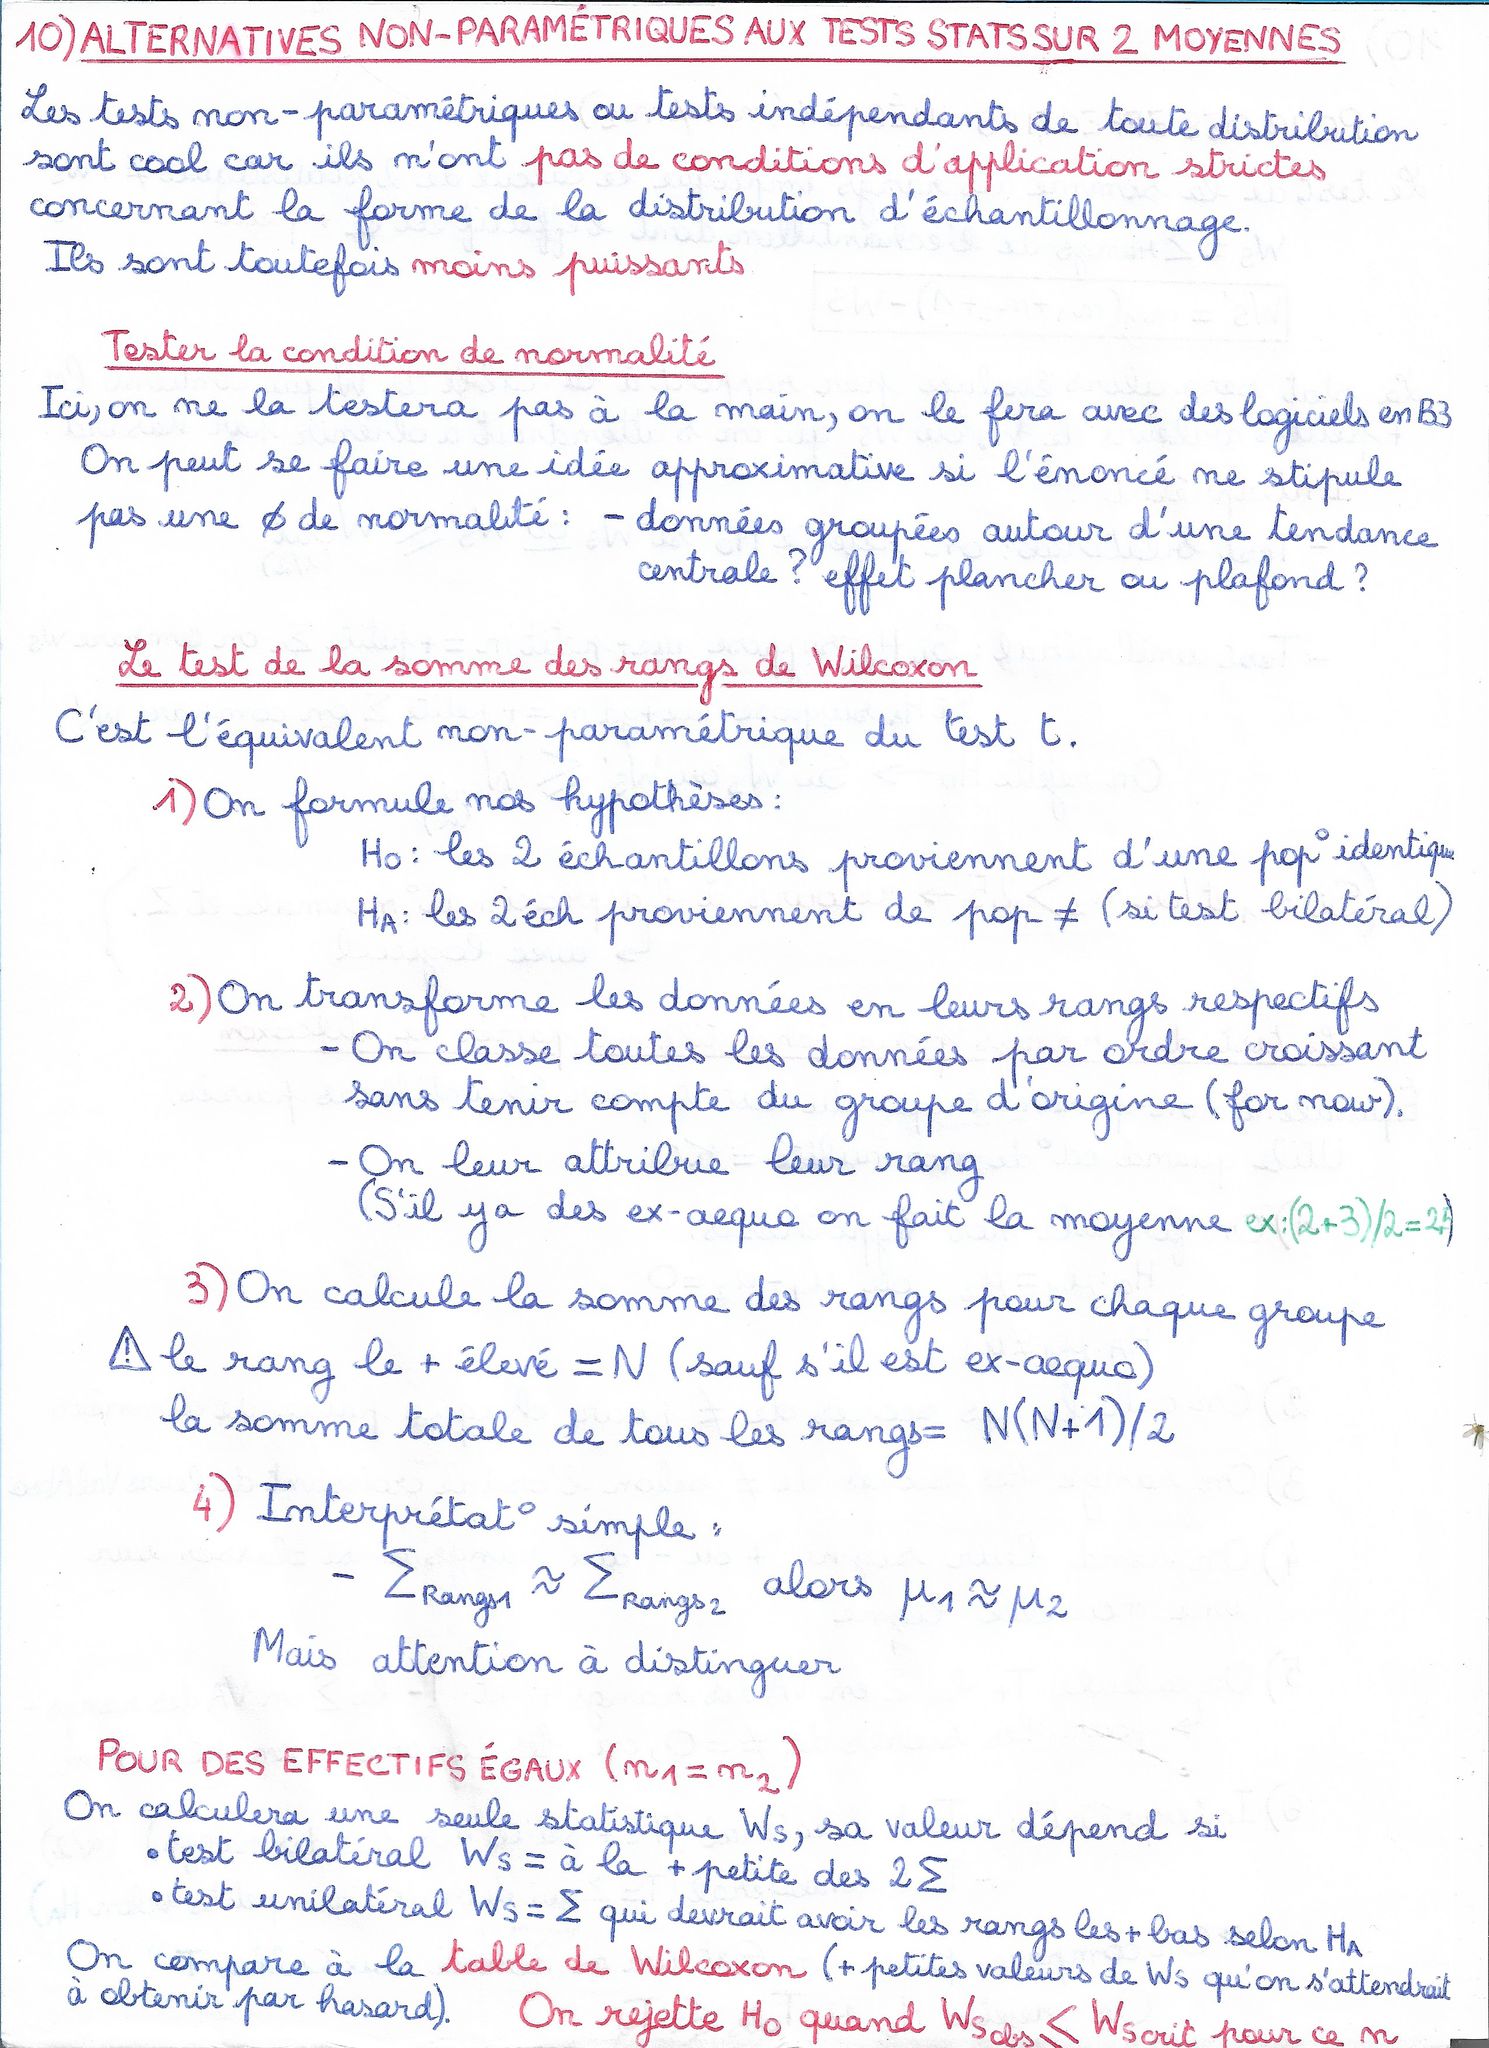 10) ALTERNATIVES NON-PARAMÉTRIQUES AUX TESTS STATS SUR 2 MOYENNES
Les tests non-paramétriques ou tests indépendants de toute distribution
sont cool car ils n'ont pas de conditions d'application strictes
concernant la forme de la distribution d'échantillonnage.
Ils sont toutefois moins puissants
Tester la condition de normalité
Ici, on ne la testera pas à la main, on le fera avec des logiciels en B3
On peut se faire une idée approximative si l'énoncé ne stipule
pas une ϕ de normalité : - données groupées autour d'une tendance
centrale ? effet plancher ou plafond ?
Le test de la somme des rangs de Wilcoxon
C'est l'équivalent non-paramétrique du test t.
1) On formule nos hypothèses :
H0 : les 2 échantillons proviennent d'une pop° identique
HA : les 2 éch proviennent de pop ≠ (si test bilatéral)
2) On transforme les données en leurs rangs respectifs
- On classe toutes les données par ordre croissant
sans tenir compte du groupe d'origine (for now).
- On leur attribue leur rang
(S'il y a des ex-aequo on fait la moyenne ex : (2+3)/2 =
3) On calcule la somme des rangs pour chaque groupe
⚠ le rang le + élevé = N (sauf s'il est ex-aequo)
la somme totale de tous les rangs = N(N+1)/2
4) Interprétat° simple :
- ∑Rangs1 ≈ ∑Rangs2 alors µ1 ≈ µ2
Mais attention à distinguer
POUR DES EFFECTIFS ÉGAUX (n1 = n2)
On calculera une seule statistique Ws, sa valeur dépend si
• test bilatéral Ws = à la + petite des 2 ∑
• test unilatéral Ws = ∑ qui devrait avoir les rangs les + bas selon HA
On compare à la table de Wilcoxon (+ petites valeurs de Ws qu'on s'attendrait
à obtenir par hasard). On rejette H0 quand Wsobs < Wscrit pour ce n